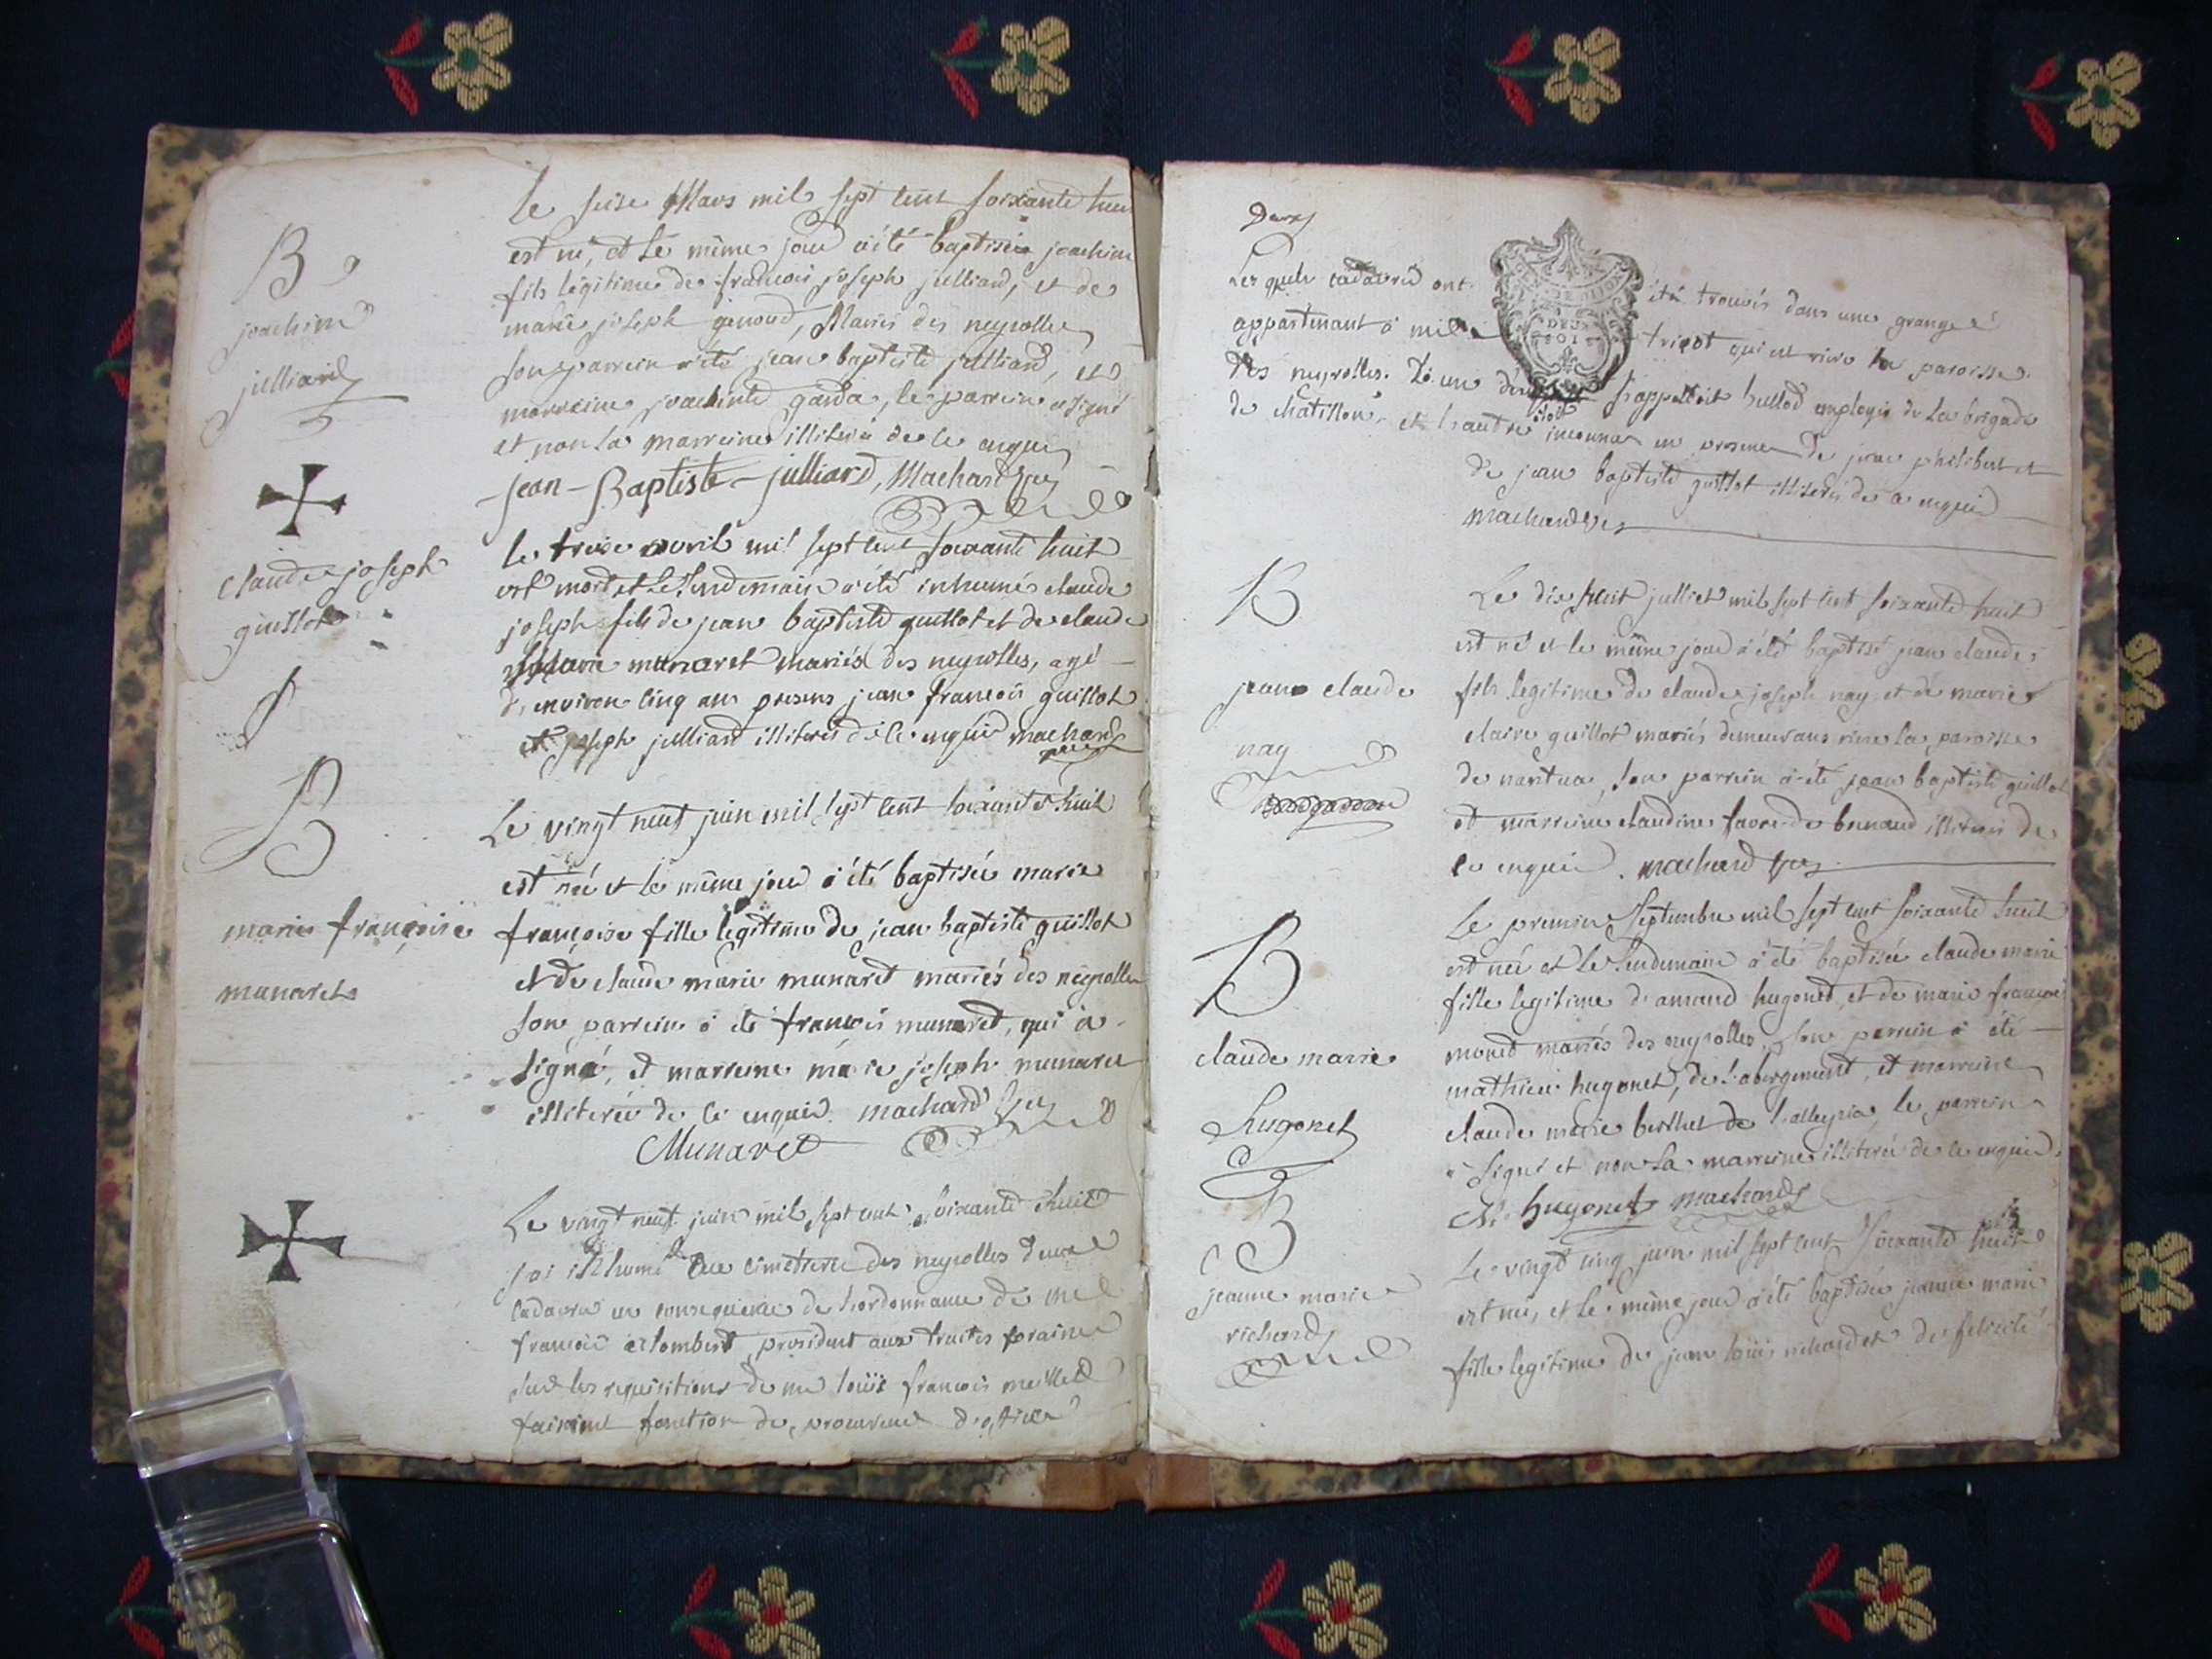 B
joachim
julliard
le seise Mars mil sept cent soixante huit
est né, et le même jour a été baptisé joachim
fils légitime de françois joseph julliard, et de
marie joseph genoud, Mariés des neyrolles
son parrein a été jean baptiste julliard, et
marreine joachinte garda, le parrein a signé
et non la marreine illiterée de ce enquis
jean-Baptiste-julliard, Machard
claude joseph
guillot
le treise avril mil sept cent soixante huit
est mort et le lendemain a été inhumé claude
joseph fils de jean baptiste guillot et de claude
marie munaret mariés des neyrolles, agé
d'environ cinq ans presens jean françois guillot
et joseph julliard illiterés de ce enquis machard
B
marie françoise
munaret
Le vingt neuf juin mil sept cent soixante huit
est née et le même jour a été baptisée marie
françoise fille legitime de jean baptiste guillot
et de claude marie munaret mariés des neyrolles
son parrein a été françois munaret, qui a
signé, et marreine marie joseph munaret
illiterée de ce enquis machard
Munaret
Le vingt neuf juin mil sept cent soixante huit
j'ai inhumé au cimetiere des neyrolles deux
cadavres en consequence de l'ordonnance de me
françois président aux traites foraines
sur les requisitions de me loüis françois
faisant fonction de procureur d'office
Deux
Lesquels cadavres ont été trouvés dans une grange
appartenant à tricot qui est rière la paroisse
des neyrolles. L'un s'appelloit employé de la brigade
de chatillon, et l'autre inconnu en presence de jean philibert et
de jean baptiste guillot illiterés de ce enquis
machard
B
jean claude
nay
Le dix huit julliet mil sept cent soixante huit
est né et le même jour a été baptisé jean claude
fils legitime de claude joseph nay et de marie
claire guillot mariés demeurans rière la paroisse
de nantua, son parrein a été jean baptiste guillot
et marreine claudine favre de brenaud illiterés de
ce enquis. machard
B
claude marie
hugonet
Le premier septembre mil sept cent soixante huit
est née et le lendemain a été baptisée claude marie
fille legitime d'amand hugonet, et de marie françoise
monet mariés des neyrolles, son parrein a été
mathieu hugonet, de l'abergement, et marreine
claude marie berthet de l'alleyria, le parrein
a signé et non la marreine illiterée de ce enquis
M. hugonet machard
B
jeanne marie
richard
Le vingt cinq juin mil sept cent soixante huit
est née, et le même jour a été baptisée jeanne marie
fille legitime de jean loüis richard et de felicité